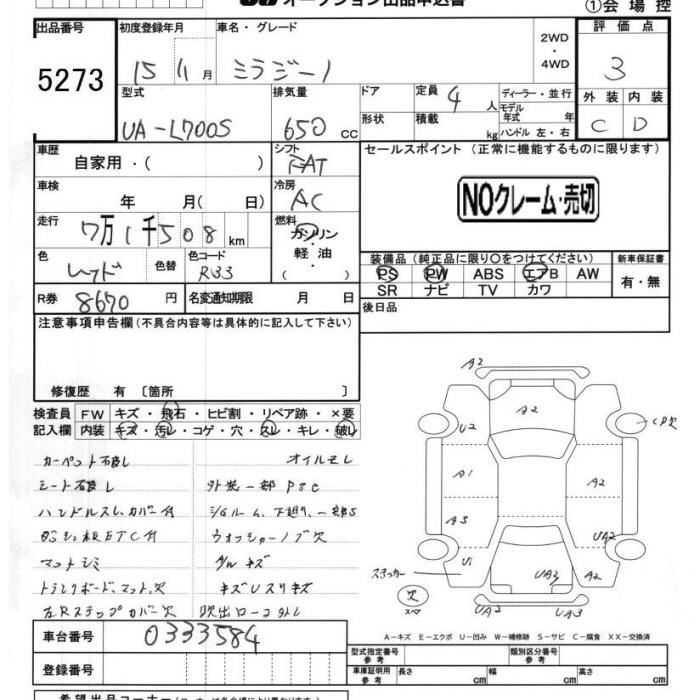 オークション出品申込書
①会場控
出品番号 5273
初度登録年月 15 11月
車名・グレード ミラジーノ
2WD・4WD
評価点 3
型式 UA-L700S
排気量 650cc
ドア
形状
定員 4人
積載 kg
ディーラー・並行
モデル年式 年
ハンドル 左・右
外装 C
内装 D
車歴 自家用・( )
シフト FAT
車検 年 月( 日)
冷房 AC
走行 7万1千508km
燃料 ガソリン・軽油・( )
色 レッド
色替
カラーコード R33
R券 8670円
名変通知期限 月 日
セールスポイント(正常に機能するものに限ります)
NOクレーム・売切
装備品(純正品に限り○をつけてください)
PS PW ABS エアB AW
SR ナビ TV カワ
新車保証書 有・無
後日品
注意事項申告欄(不具合内容等は具体的に記入して下さい)
修復歴 有〔箇所 〕
検査員記入欄
FW キズ・飛石・ヒビ割・リペア跡・×要
内装 キズ・汚レ・コゲ・穴・スレ・キレ・破レ
カーペット汚レ
オイルモレ
シート汚レ
外装一部PSC
ハンドルスレ、カバー付
下廻り、一部S
ETC付
ウォッシャーノブ欠
マットシミ
グルキズ
トランクボード、マット、欠
キズUスリキズ
左Rステップカバー欠
吹出口一コ外レ
A2
A2
U2
CP欠
A1
A2
AS
UA2
U1
ステッカー
UA3
A2
欠
スペア
UA2
UA3
A-キズ E-エクボ U-凹み W-補修跡 S-サビ C-腐食 XX-交換済
車台番号 0333584
登録番号
型式指定番号 参考
類別区分番号 参考
車庫証明用 参考 長さ cm 幅 cm 高さ cm
希望出品コーナー